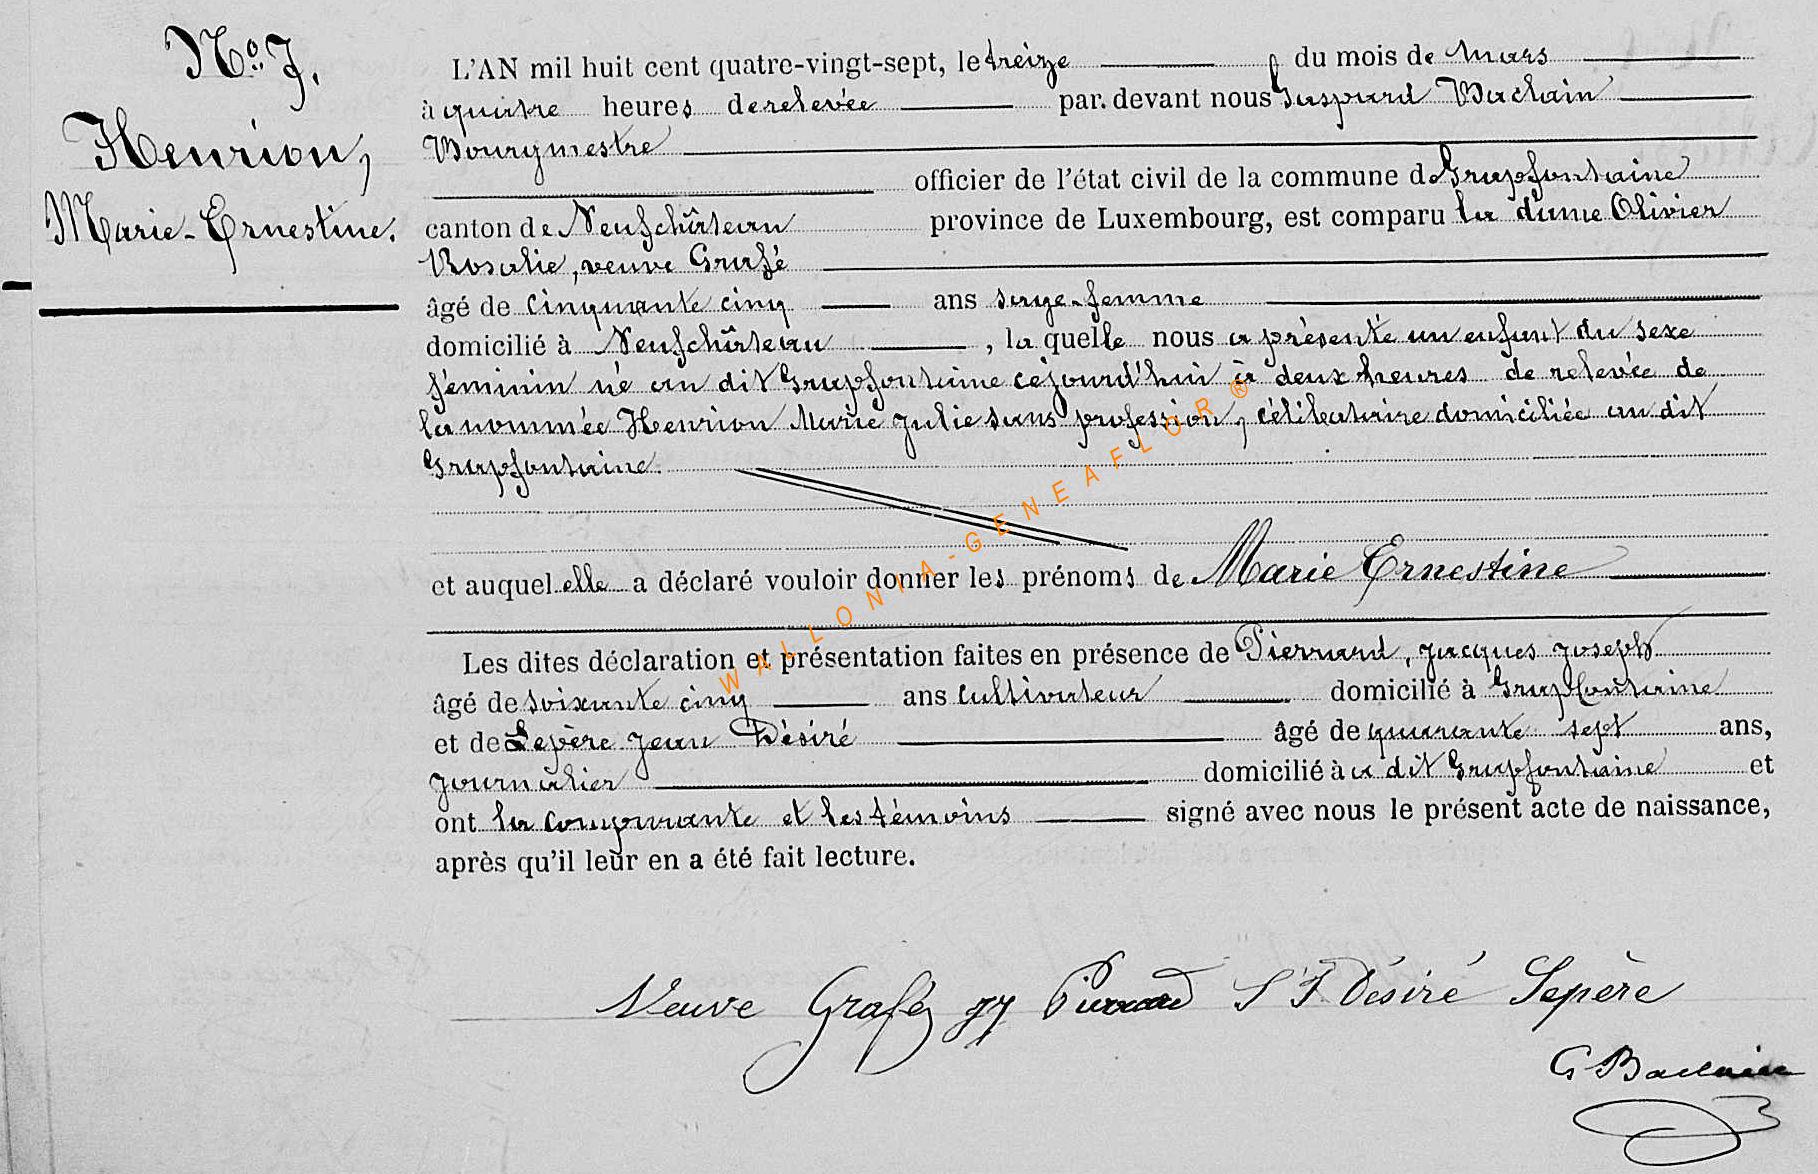 Nº 7.
Henrion,
Marie-Ernestine.
L'AN mil huit cent quatre-vingt-sept, le treize du mois de Mars
à quatre heures de relevée par. devant nous Gaspard Bachain
Bourgmestre
officier de l'état civil de la commune de Grapfontaine
canton de Neufchâteau province de Luxembourg, est comparu la dame Olivier
Rosalie, veuve Grafé
âgé de cinquante cinq ans sage-femme
domicilié à Neufchâteau , la quelle nous a présenté un enfant du sexe
féminin né au dit Grapfontaine cejourd'hui à deux heures de relevée de
la nommée Henrion Marie Julie sans profession, célibataire domiciliée au dit
Grapfontaine.
et auquel elle a déclaré vouloir donner les prénoms de Marie Ernestine
Les dites déclaration et présentation faites en présence de Pierrard, Jacques Joseph
âgé de soixante cinq ans cultivateur domicilié à Grapfontaine
et de Lepère Jean Désiré âgé de quarante sept ans,
journalier domicilié à a dit Grapfontaine et
ont la comparante et les témoins signé avec nous le présent acte de naissance,
après qu'il leur en a été fait lecture.
Veuve Grafé JJ Pierrard Désiré Lepère
G Bachain
WALLONIA-GENEAFLOR ®